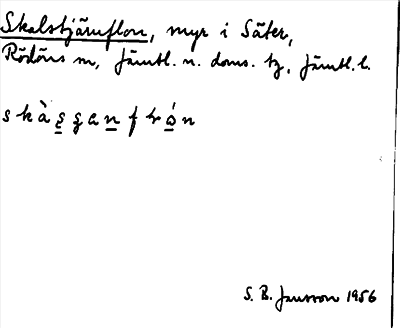 Skalstjärnflon, myr i Säter,
Rödöns sn, Jämtl. n. doms. tg, Jämtl. l.
S. B. Jansson 1956